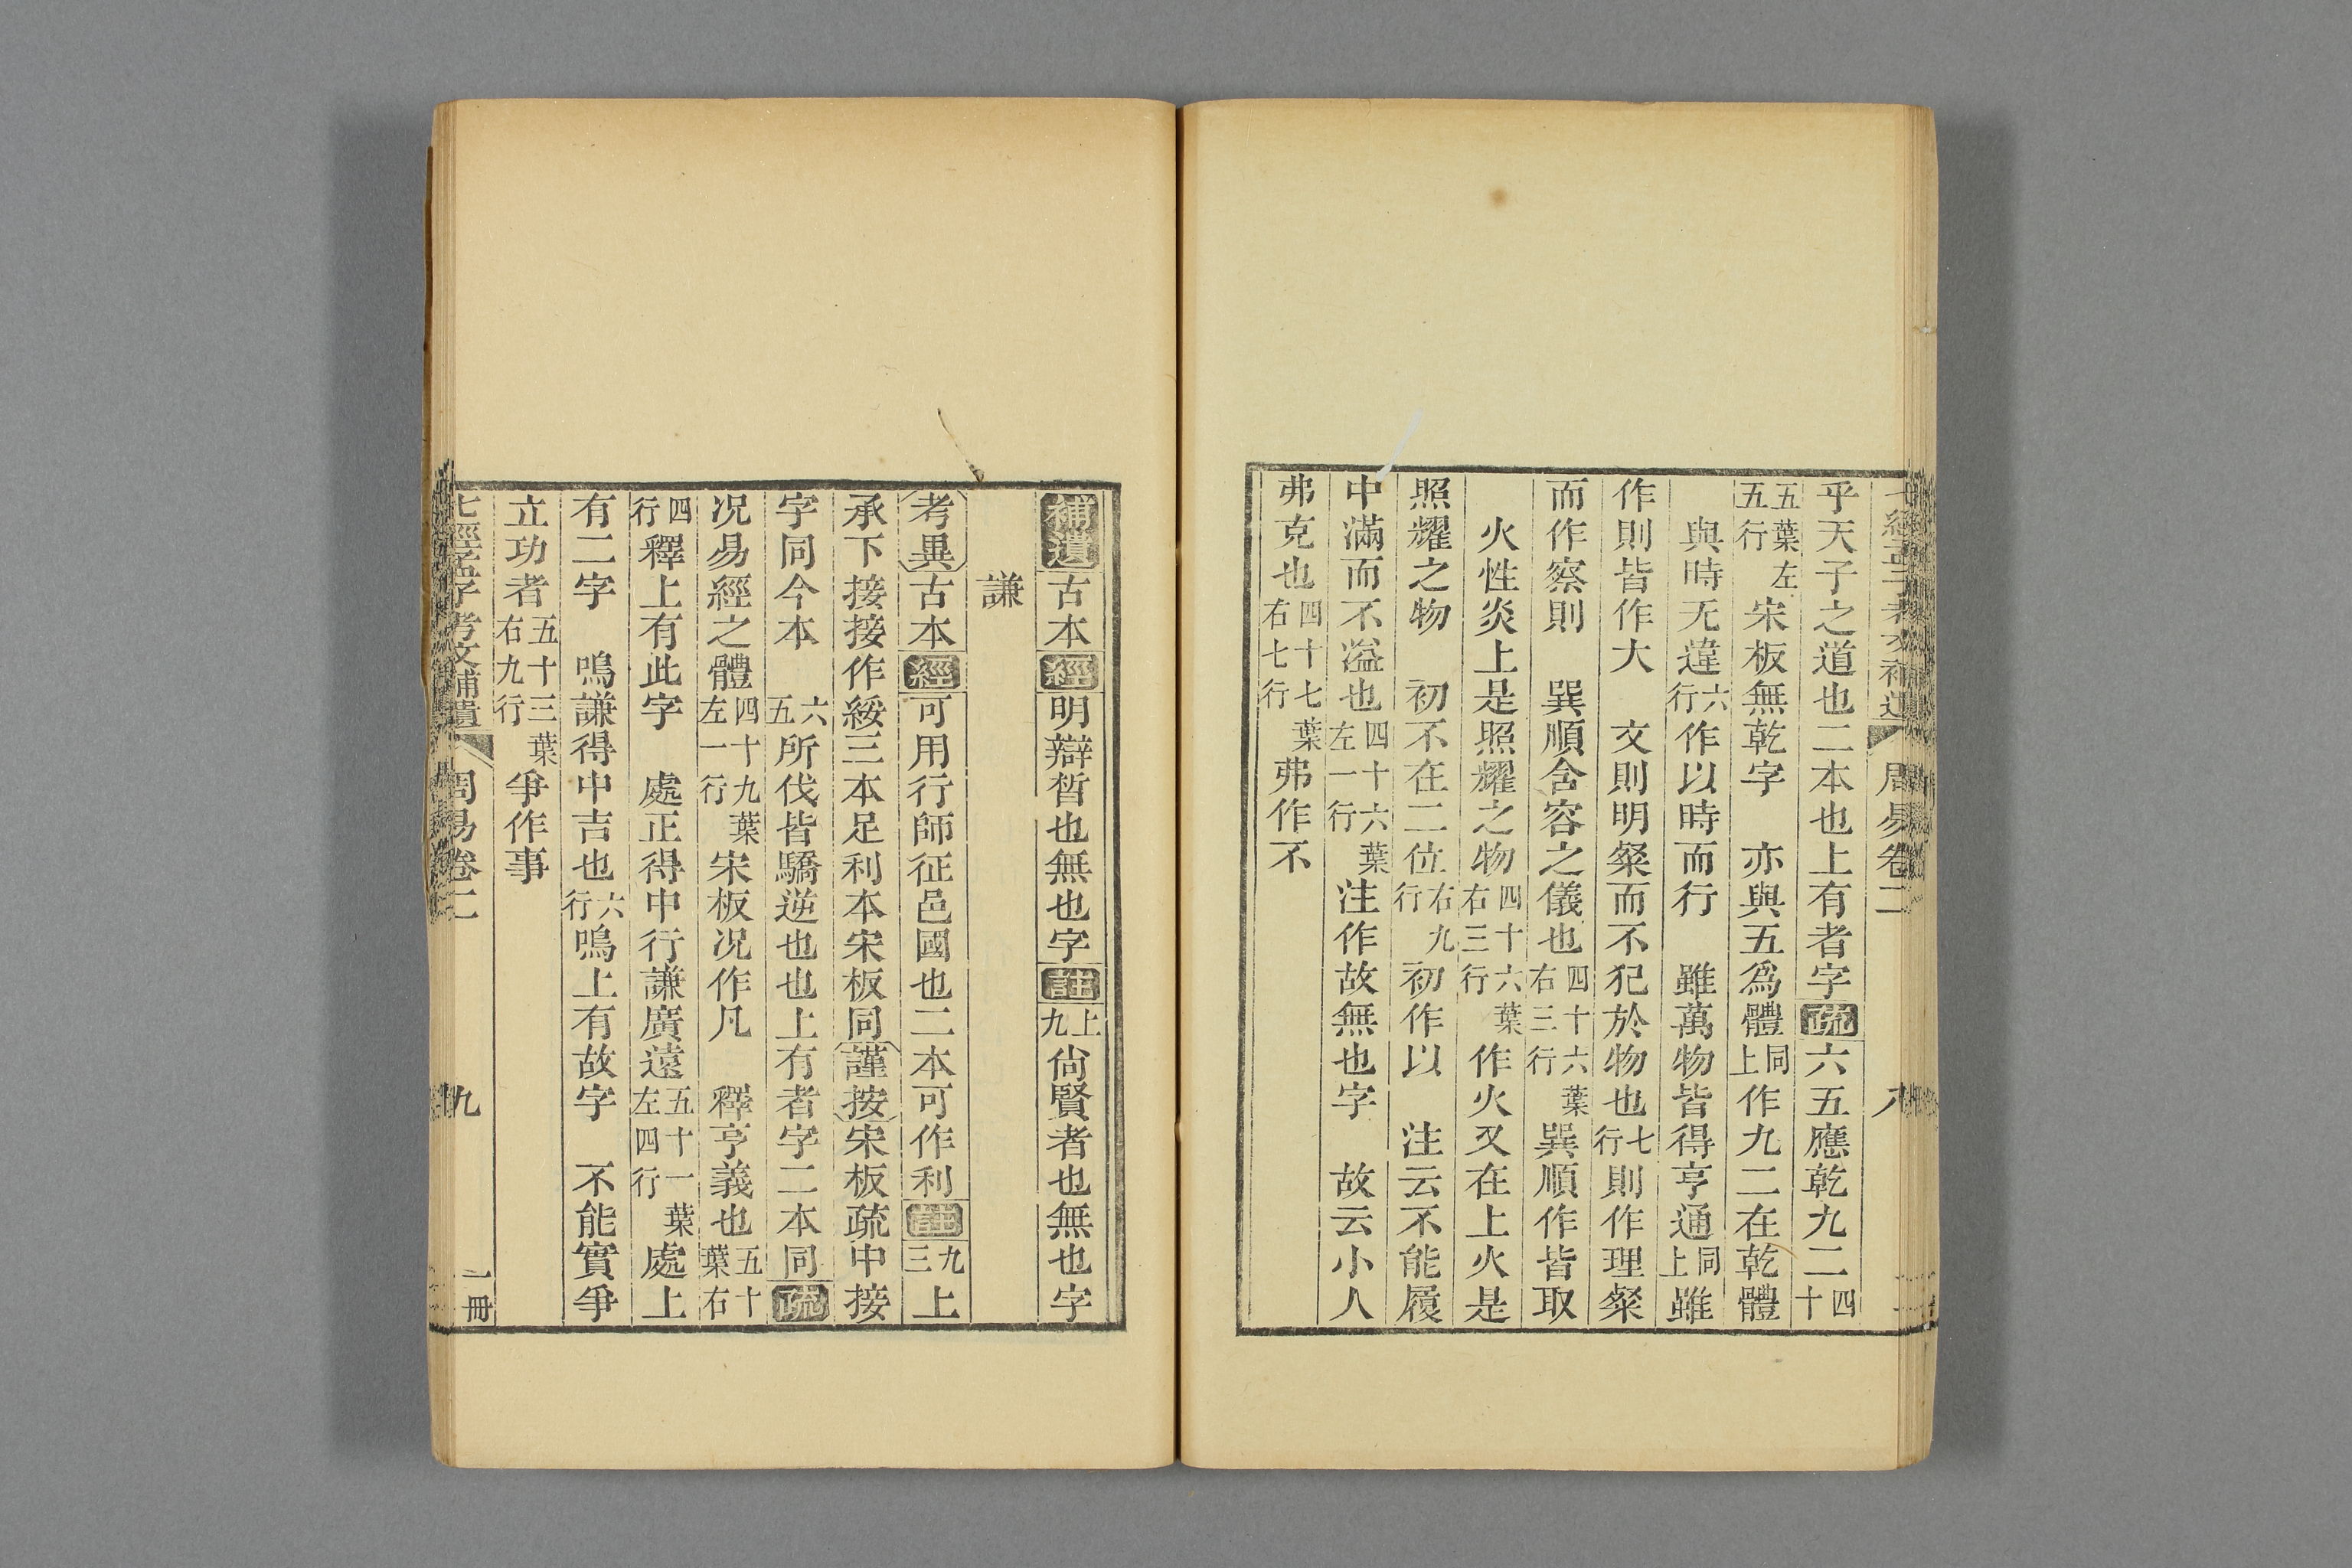 七經孟子考文補遺 周易卷二 八
乎天子之道也二本也上有者字疏六五應乾九二四十
五葉左五行宋板無乾字 亦與五爲體同上作九二在乾體
與時无違六行作以時而行 雖萬物皆得亨通同上雖
作則皆作大 文則明粲而不犯於物也七行則作理粲
而作察則 巽順含容之儀也四十六葉右三行巽順作皆取
火性炎上是照耀之物四十六葉右三行作火又在上火是
照耀之物 初不在二位右九行初作以 注云不能履
中滿而不溢也四十六葉左一行注作故無也字 故云小人
弗克也四十七葉右七行弗作不
補遺古本經明辯晢也無也字註上九尙賢者也無也字
謙
考異古本經可用行師征邑國也二本可作利註九三上
承下接接作綏三本足利本宋板同謹按宋板疏中接
字同今本 六五所伐皆驕逆也也上有者字二本同疏
况易經之體四十九葉左一行宋板况作凡 釋亨義也五十葉右
四行釋上有此字 處正得中行謙廣遠五十一葉左四行處上
有二字 鳴謙得中吉也六行鳴上有故字 不能實爭
立功者五十三葉右九行爭作事
七經孟子考文補遺 周易卷二 九 一冊